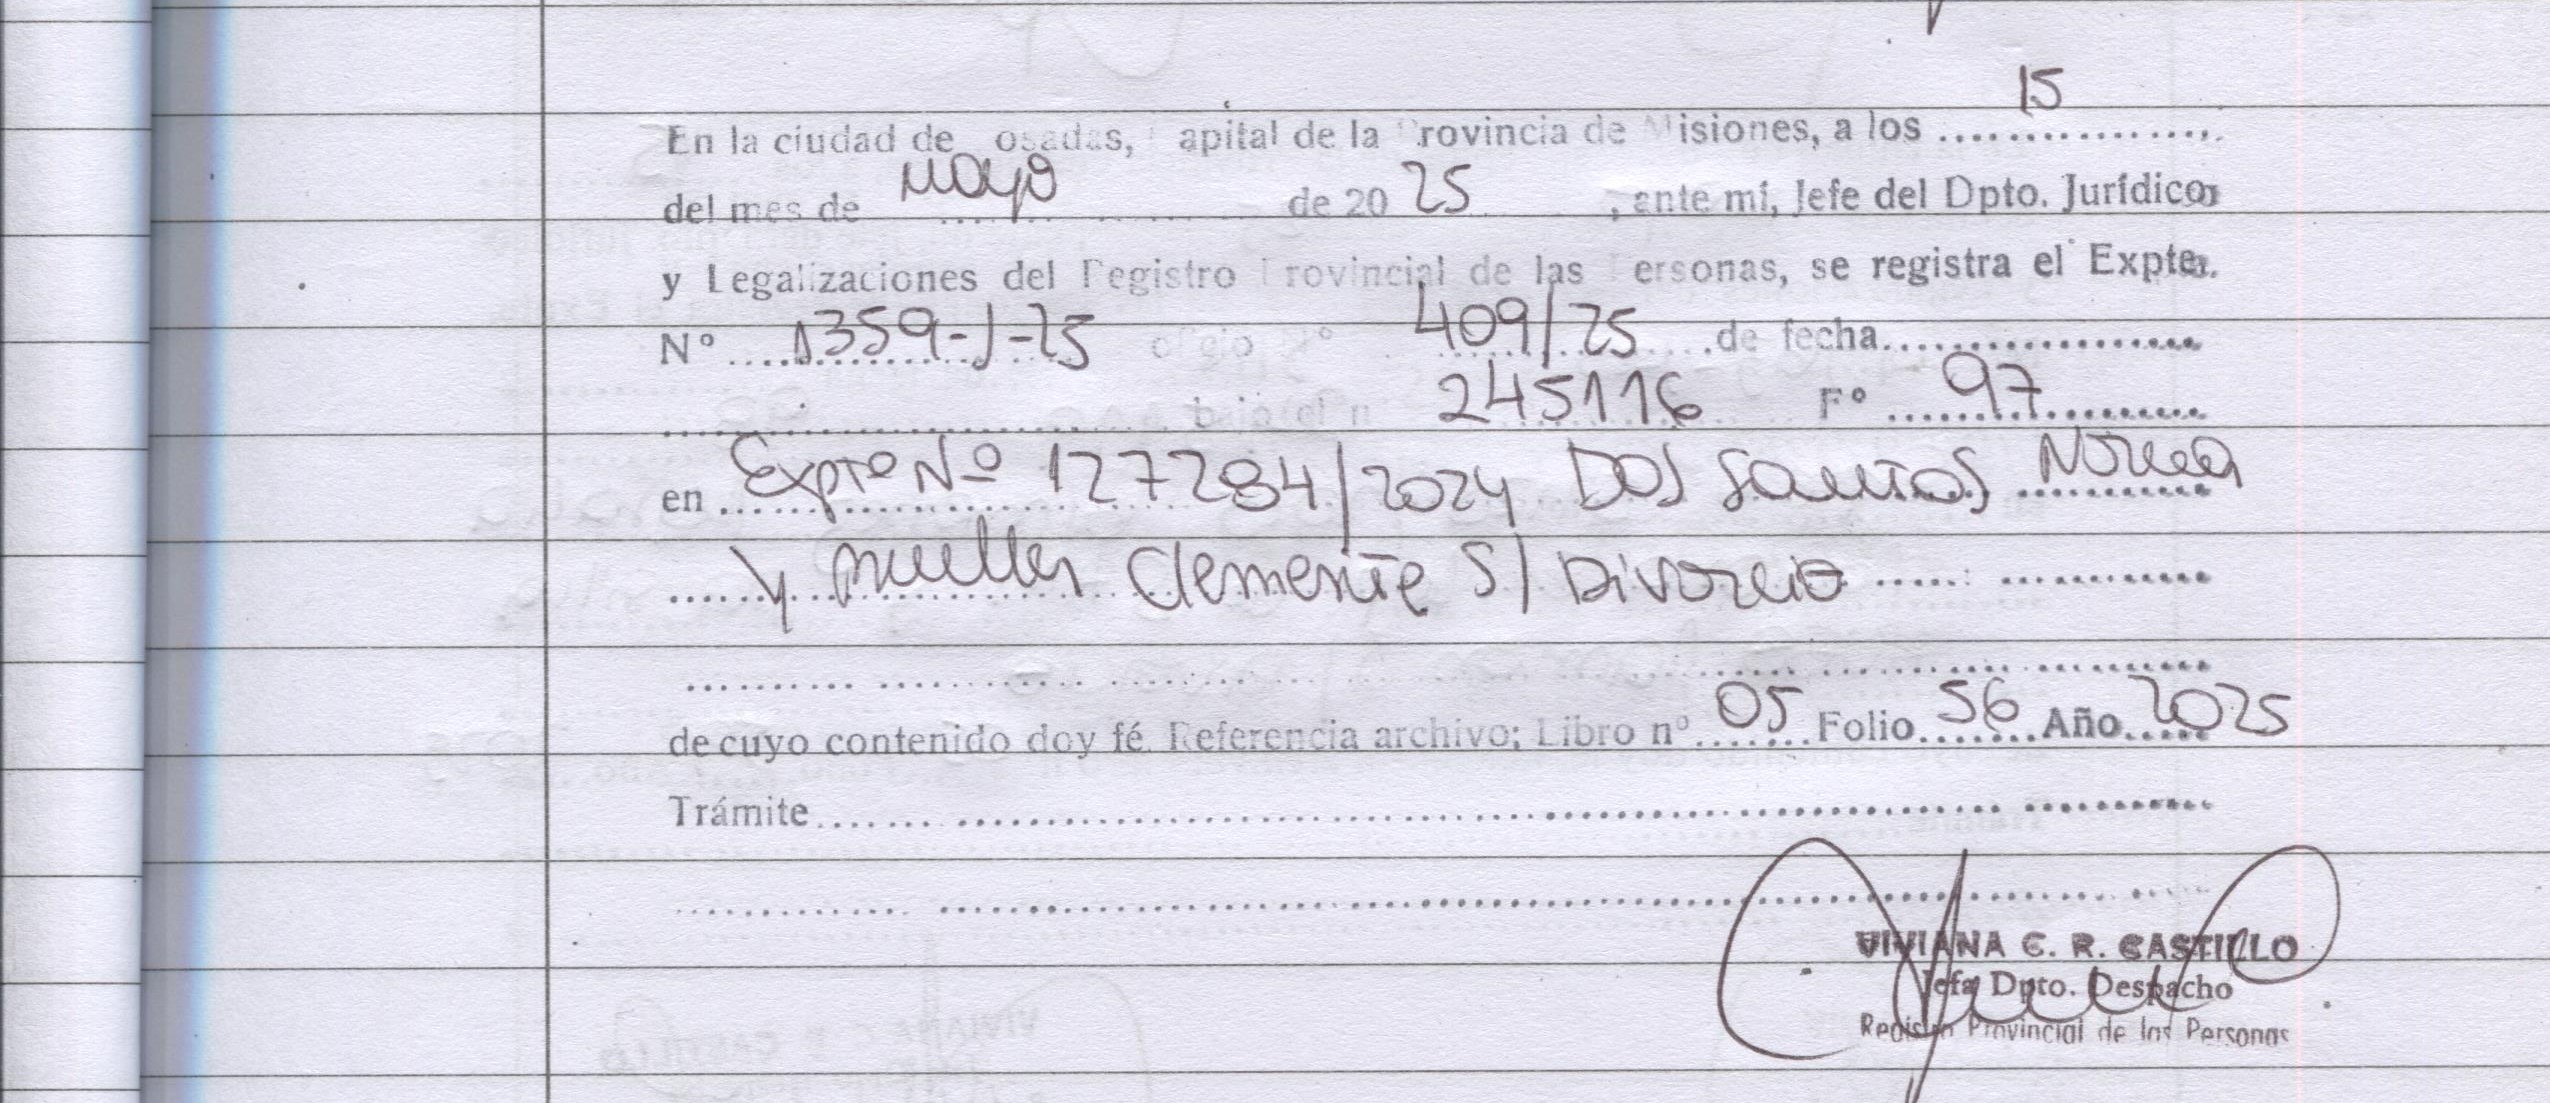 15
En la ciudad de osadas, apital de la Provincia de Misiones, a los ................
del mes de mayo de 20 25 , ante mí, Jefe del Dpto. Jurídico
y Legalizaciones del Registro Provincial de las ersonas, se registra el Expte.
N° 1359-J-25 oficio N° 409/25 de fecha..................
245116 F° 97
en Expte Nº 127284/2024 DOS SANTOS NORMA
Y Mueller Clemente S/ Divorcio
de cuyo contenido doy fé. Referencia archivo; Libro n° 05 Folio 56 Año 2025
Trámite
VIVIANA C. R. CASTILLO
Jefa Dpto. Despacho
Registro Provincial de las Personas